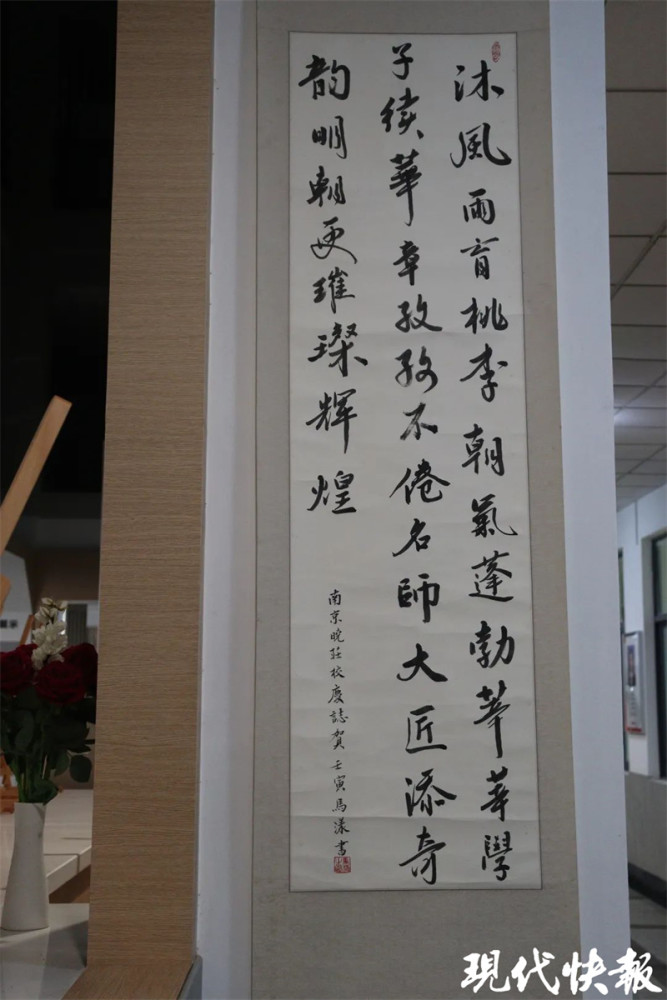 沐風雨育桃李朝氣蓬勃莘莘學
子續華章孜孜不倦名師大匠添奇
韵明朝更璀璨輝煌
南京晓莊校慶誌賀壬寅馬漾書
現代快報